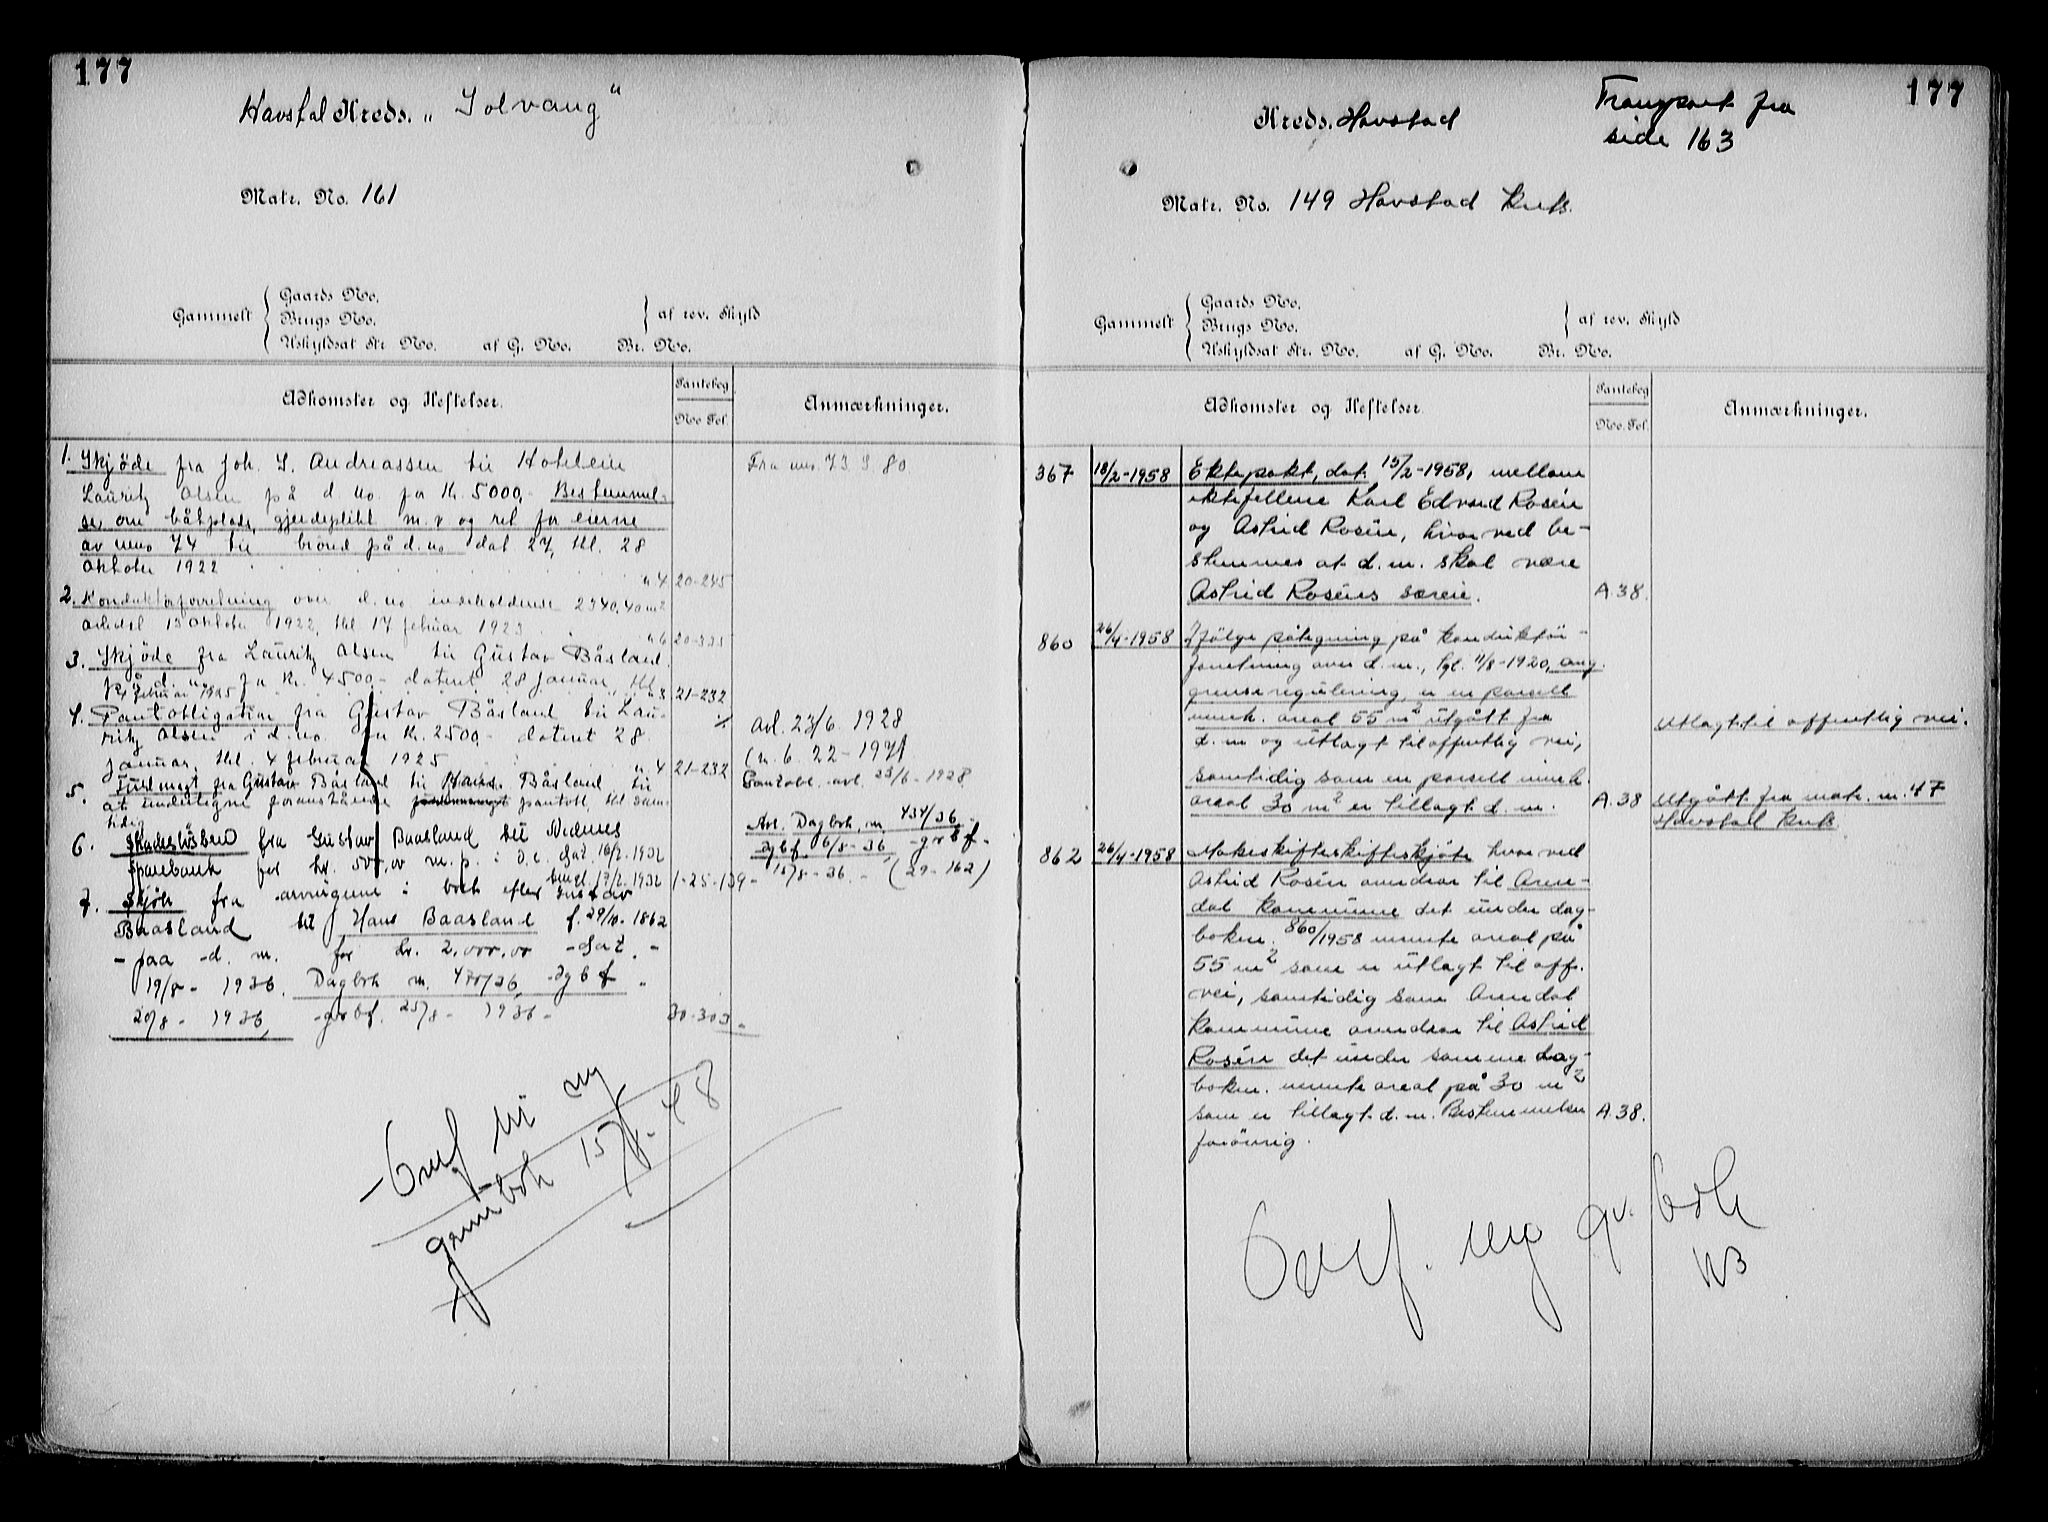 177
Havstal Kreds. „ Solvang "
Matr. No. 161
Gammelt
Gaards No.
Brugs No.
Uskyldsat Str. No. af G. No. Br. No.
af rev. Skyld
Adkomster og Heftelser.
Pantebog
No Fol.
Anmærkninger.
1. Skjøde fra Joh. S. Andreassen til
Lauritz Olsen på d. no. for Kr. 5000,- Bestemmel-
se om båtplads, gjerdeplikt m. v og ret for eierne
av mno 74 til brønd på d. no dat 27, thl. 28
Oktober 1922 " 4 20-245
Fra mno. 73 S. 80
2. Konduktørforretning over d. no indeholdende 2340,40 m2
avholdt 13 Oktober 1922, thl 17 februar 1923 " 6 20-335
3. Skjøde fra Lauritz Olsen til Gustav Båsland
på d. no. for Kr. 4500,- datert 28 januar, thl.
4 februar 1925 " 3 21-232
4. Pantobligation fra Gustav Båsland til Lau-
ritz Olsen i d. no. for Kr. 2500,- datert 28
januar, thl. 4 februar 1925 " 4 21-232
avl. 23/6. 1928
(n. 6. 22-1971
5. Fuldmagt fra Gustav Båsland til Hans Båsland til
at undertegne foranstående pantobl. thl sam-
tidig
Pantobl. avl. 23/6-1928
6. Skadesløsbrev fra Gustav Baasland til Nedenes
Sparebank for kr. 500,00 m. p. i d. e. dat 16/2-1932
tingl. 17/2. 1932 1-25-139-
Avl. Dagbok. nr. 434/36 -
dgbf. 6/8-36 - grbf.
15/8-36. - (29-162)
7. Skjøte fra arvingene i boet efter Gustav
Baasland til Hans Baasland f. 29/10-1862
- paa d. m. for kr. 2.000,00 - dat. -
19/8- 1936. Dagbok nr. 470/36, dgbf
20/8- 1936, - grbf. 25/8- 1936- 30-303-
Overf til ny
grunnbok 15/8-48
177
Transport fra
side 163
Kreds. Havstad
Matr. No. 149 Havstad krets.
Gammelt
Gaards No.
Brugs No.
Uskyldsat Str. No. af G. No. Br. No.
af rev. Skyld
Adkomster og Heftelser.
Pantebog
No. Fol.
Anmærkninger.
367 18/2-1958 Ektepakt, dat. 15/2-1958, mellom
ektefellene Karl Edvard Rosén
og Astrid Rosén, hvorved be-
stemmes at d. m. skal være
Astrid Roséns særeie. A.38.
860 26/4-1958 Ifølge påtegning på konduktør-
forretning over d. m., tgl. 11/8-1920, ang.
grenseregulering, er en parsell
innh. areal 55 m2 utgått fra
d. m og utlagt til offentlig vei,
samtidig som en parsell innh.
areal 30 m2 er tillagt d. m. A.38
Utlagt til offentlig vei.
Utgått fra matr. nr. 47
Havstad krets
862 26/4-1958 Makeskifteskifteskjøte hvorved
Astrid Rosén avendrar til Aren-
dal kommune det under dag-
boknr. 860/1958 nevnte areal på
55 m2 som er utlagt til off.
vei, samtidig som Arendal
kommune avendrar til Astrid
Rosén det under samme dag-
boknr. nevnte areal på 30 m2
som er tillagt d. m. Bestemmelser A.38.
forøvrig.
Overf. ny gr. bok